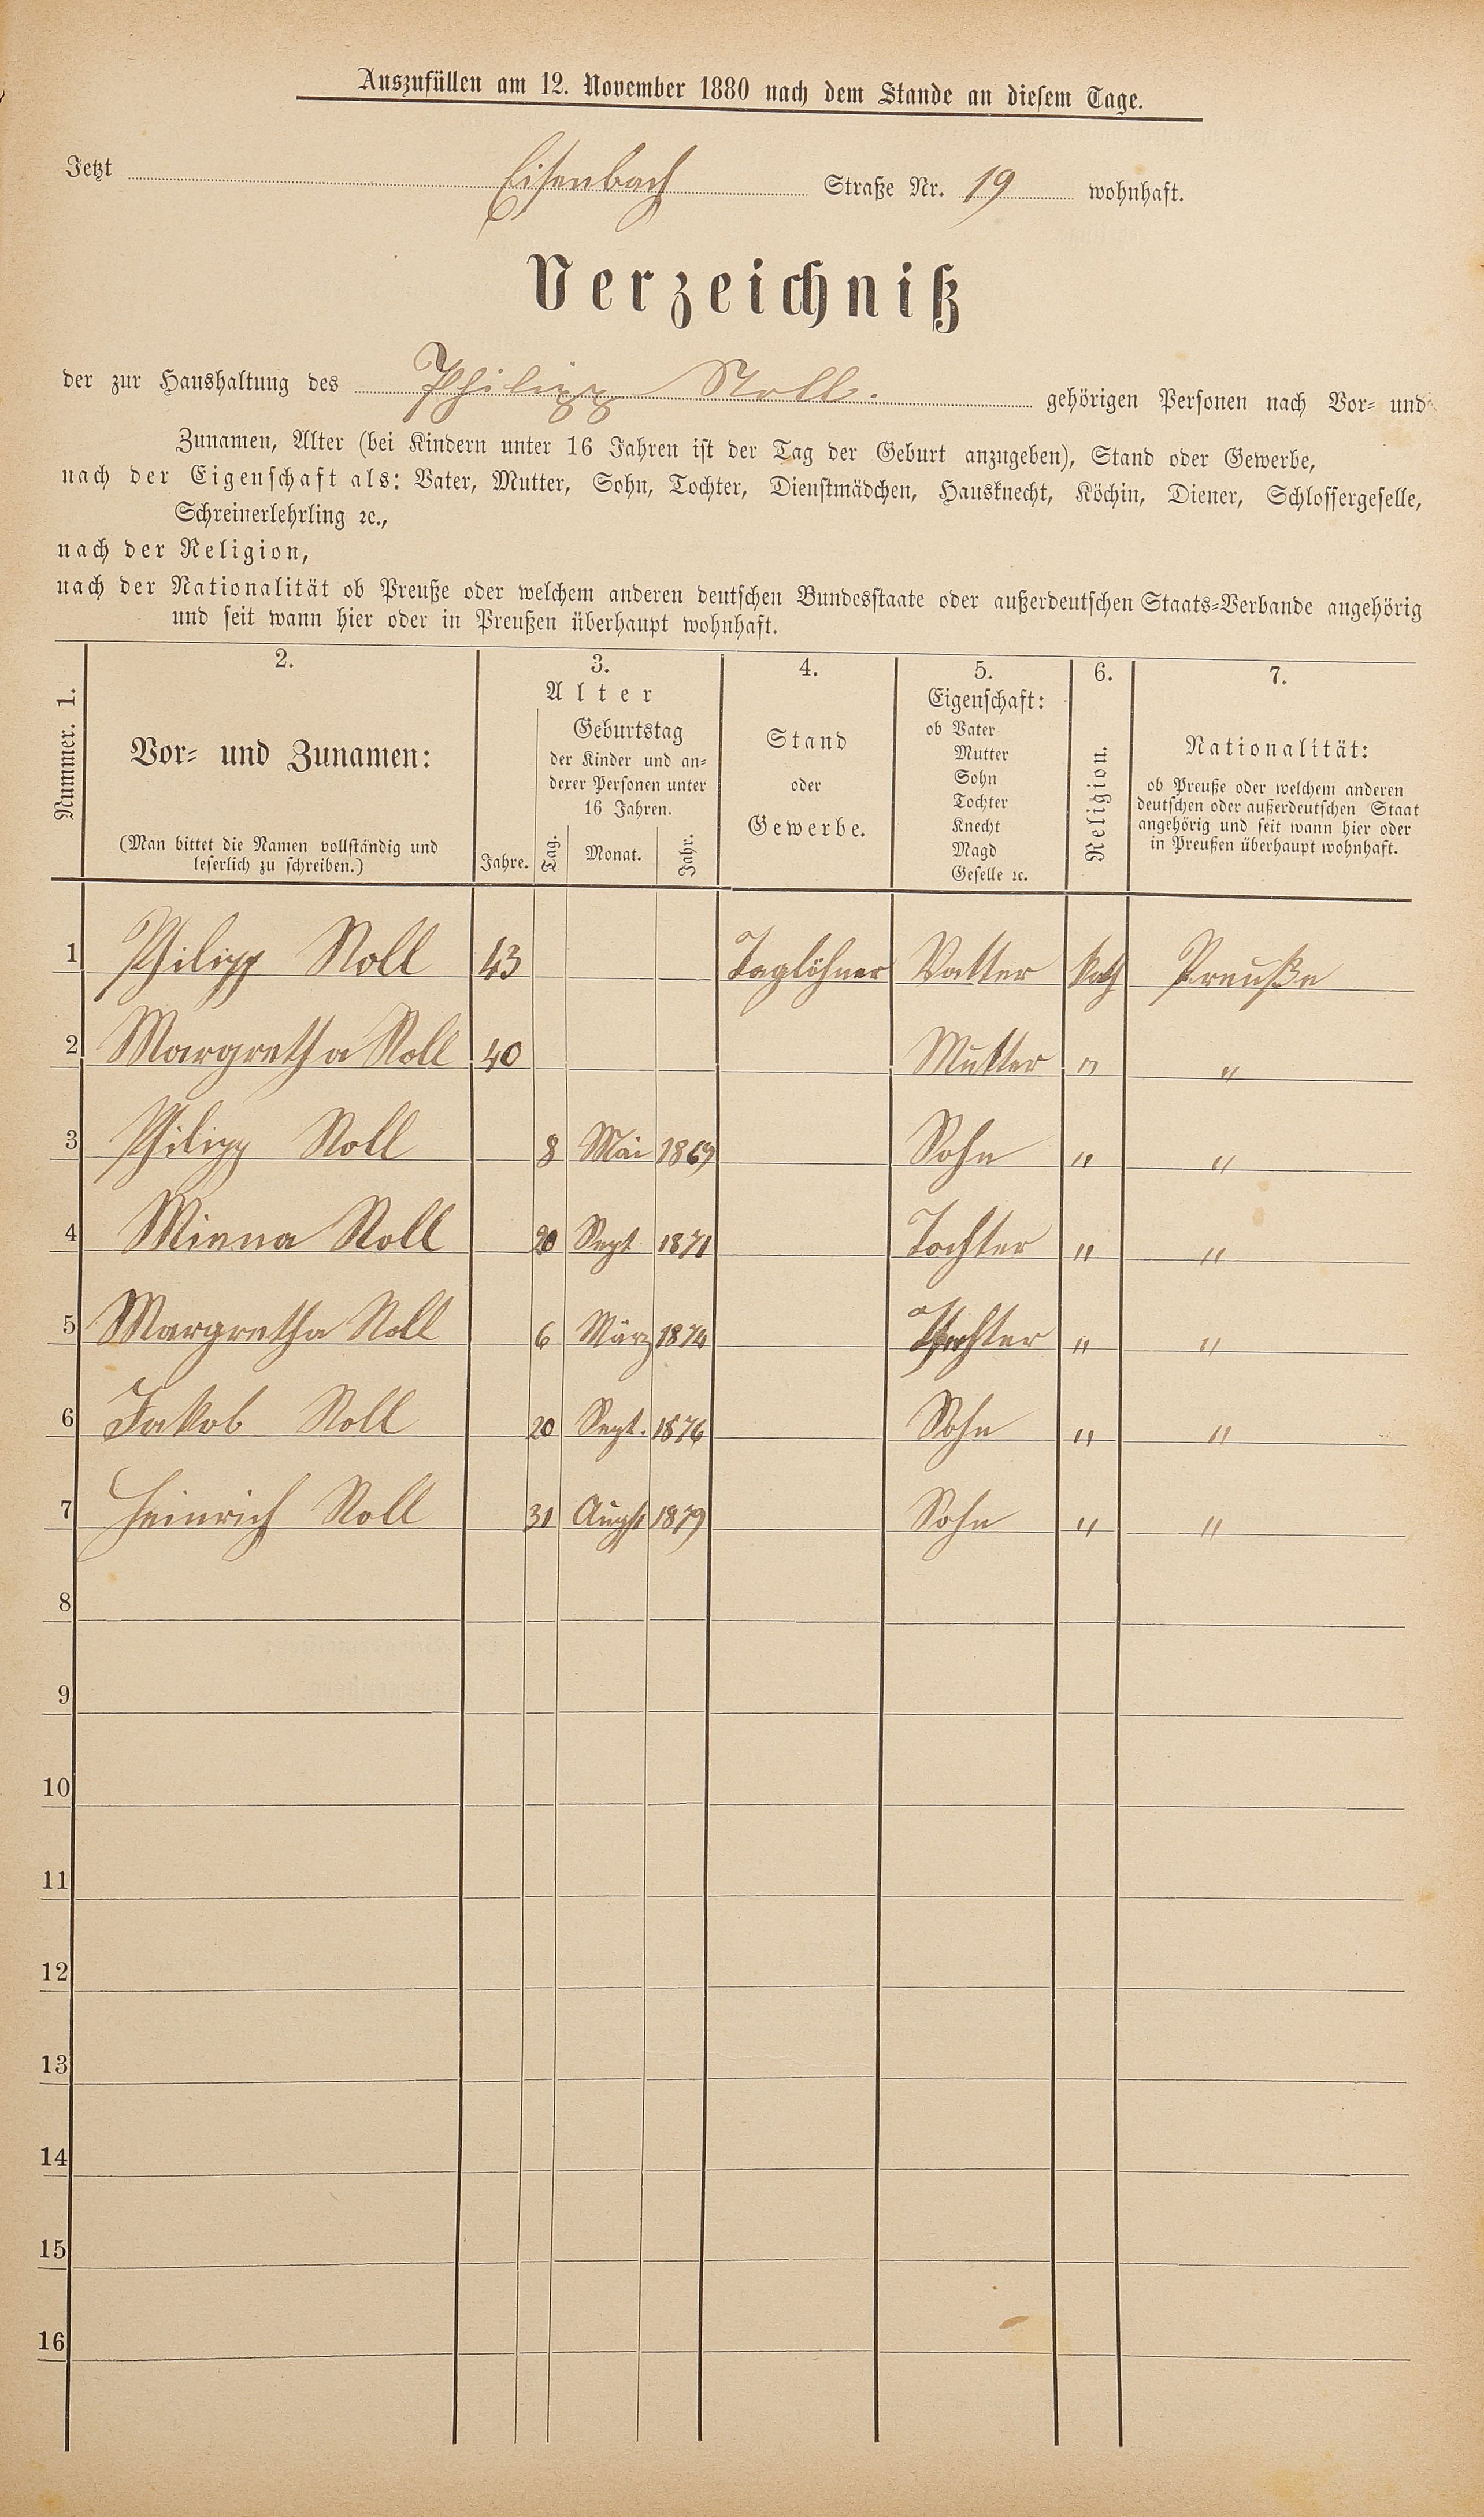 Auszufüllen am 12. November 1880 nach dem Stande an diesem Tage.
Jetzt Eisenbach Straße Nr. 19 wohnhaft.
Verzeichniß
der zur Haushaltung des Philipp Noll. gehörigen Personen nach Vor- und
Zunamen, Alter (bei Kindern unter 16 Jahren ist der Tag der Geburt anzugeben), Stand oder Gewerbe,
nach der Eigenschaft als: Vater, Mutter, Sohn, Tochter, Dienstmädchen, Hausknecht, Köchin, Diener, Schlossergeselle,
Schreinerlehrling ꝛc.,
nach der Religion,
nach der Nationalität ob Preuße oder welchem anderen deutschen Bundesstaate oder außerdeutschen Staats-Verbande angehörig
und seit wann hier oder in Preußen überhaupt wohnhaft.
Nummer. 1.
2.
Vor- und Zunamen:
(Man bittet die Namen vollständig und
leserlich zu schreiben.)
3.
Alter
Jahre.
Geburtstag
der Kinder und an-
derer Personen unter
16 Jahren.
Tag. Monat. Jahr.
4.
Stand
oder
Gewerbe.
5.
Eigenschaft:
ob Vater
Mutter
Sohn
Tochter
Knecht
Magd
Geselle ꝛc.
6.
Religion.
7.
Nationalität:
ob Preuße oder welchem anderen
deutschen oder außerdeutschen Staat
angehörig und seit wann hier oder
in Preußen überhaupt wohnhaft.
1 Philipp Noll 43 Taglöhner Vatter kath Preuße
2 Margretha Noll 40 Mutter " "
3 Philipp Noll 8 Mai 1869 Sohn " "
4 Minna Noll 20 Sept 1871 Tochter " "
5 Margretha Noll 6 März 1874 Tochter " "
6 Jakob Noll 20 Sept. 1876 Sohn " "
7 Heinrich Noll 31 Augst 1879 Sohn " "
8
9
10
11
12
13
14
15
16